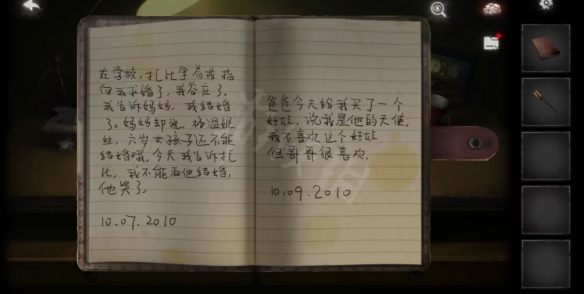 在学校,托比拿着戒指
向我求婚了,我答应了。
我告诉妈妈,我结婚
了。妈妈却说,格温妮
丝,六岁女孩子还不能
结婚哦。今天我告诉托
比,我不能跟他结婚,
他哭了。
10.07.2010
爸爸今天给我买了一个
娃娃,说我是他的天使。
我不喜欢这个娃娃
但哥哥很喜欢.
10.09.2010